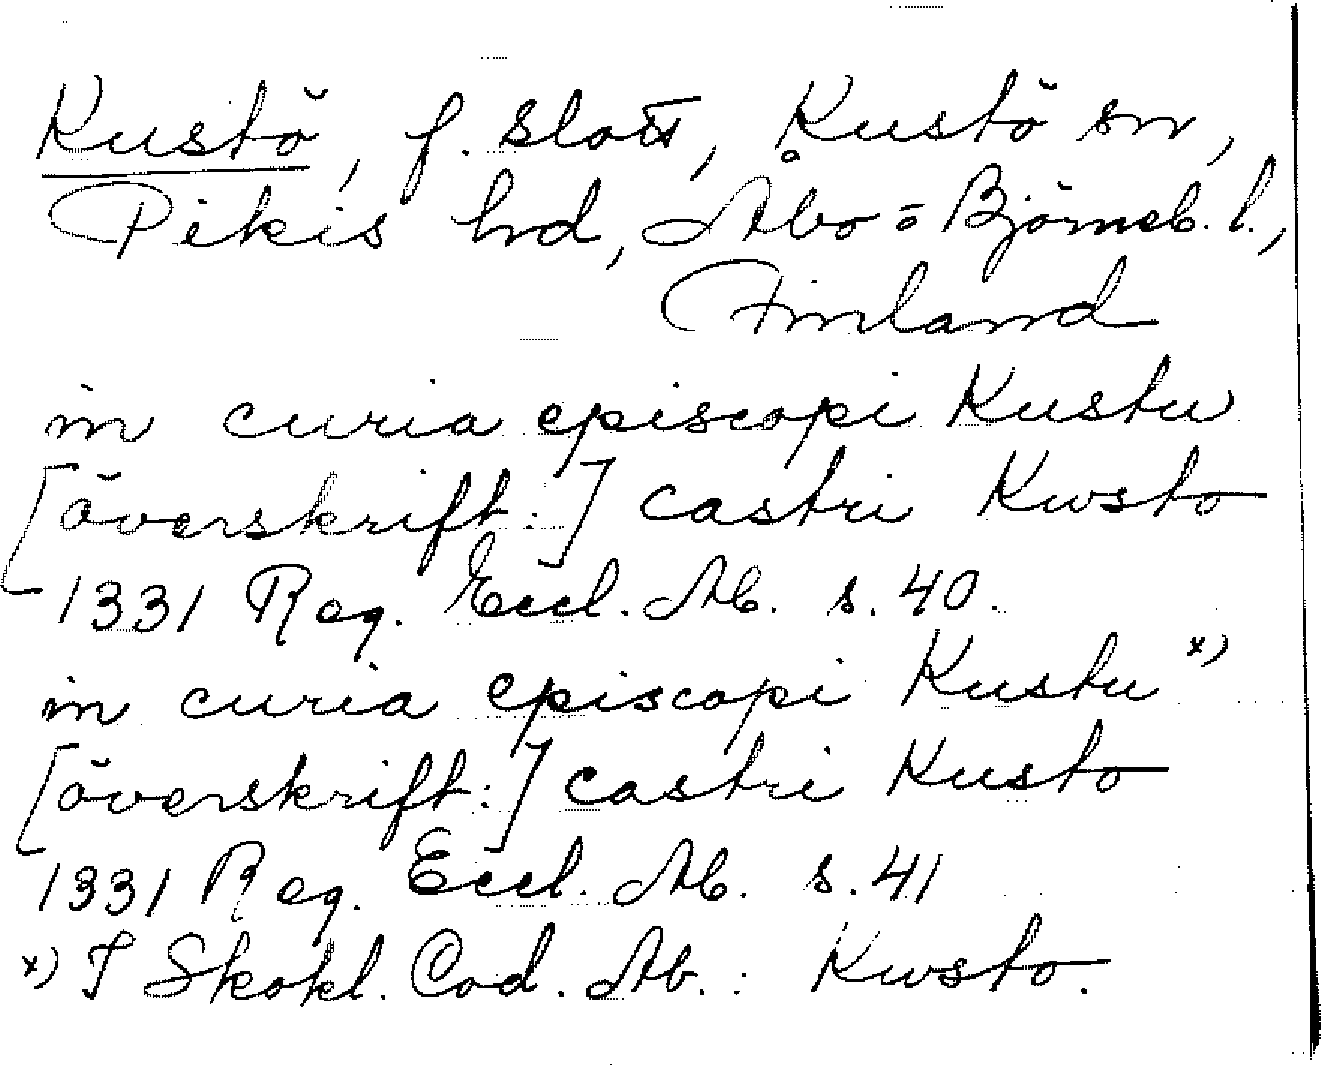 Kustö, f. slott, Kustö sn,
Pikis hd, Åbo=Björneb. l.,
Finland
in curia episcopi Kustu
[överskrift:] castri Kwsto
1331 Reg. Eccl. Ab. s. 40.
in curia episcopi Kustu x)
[överskrift:] castri Kusto
1331 Reg. Eccl. Ab. s. 41
x) I Skokl. Cod. Ab.: Kwsto.